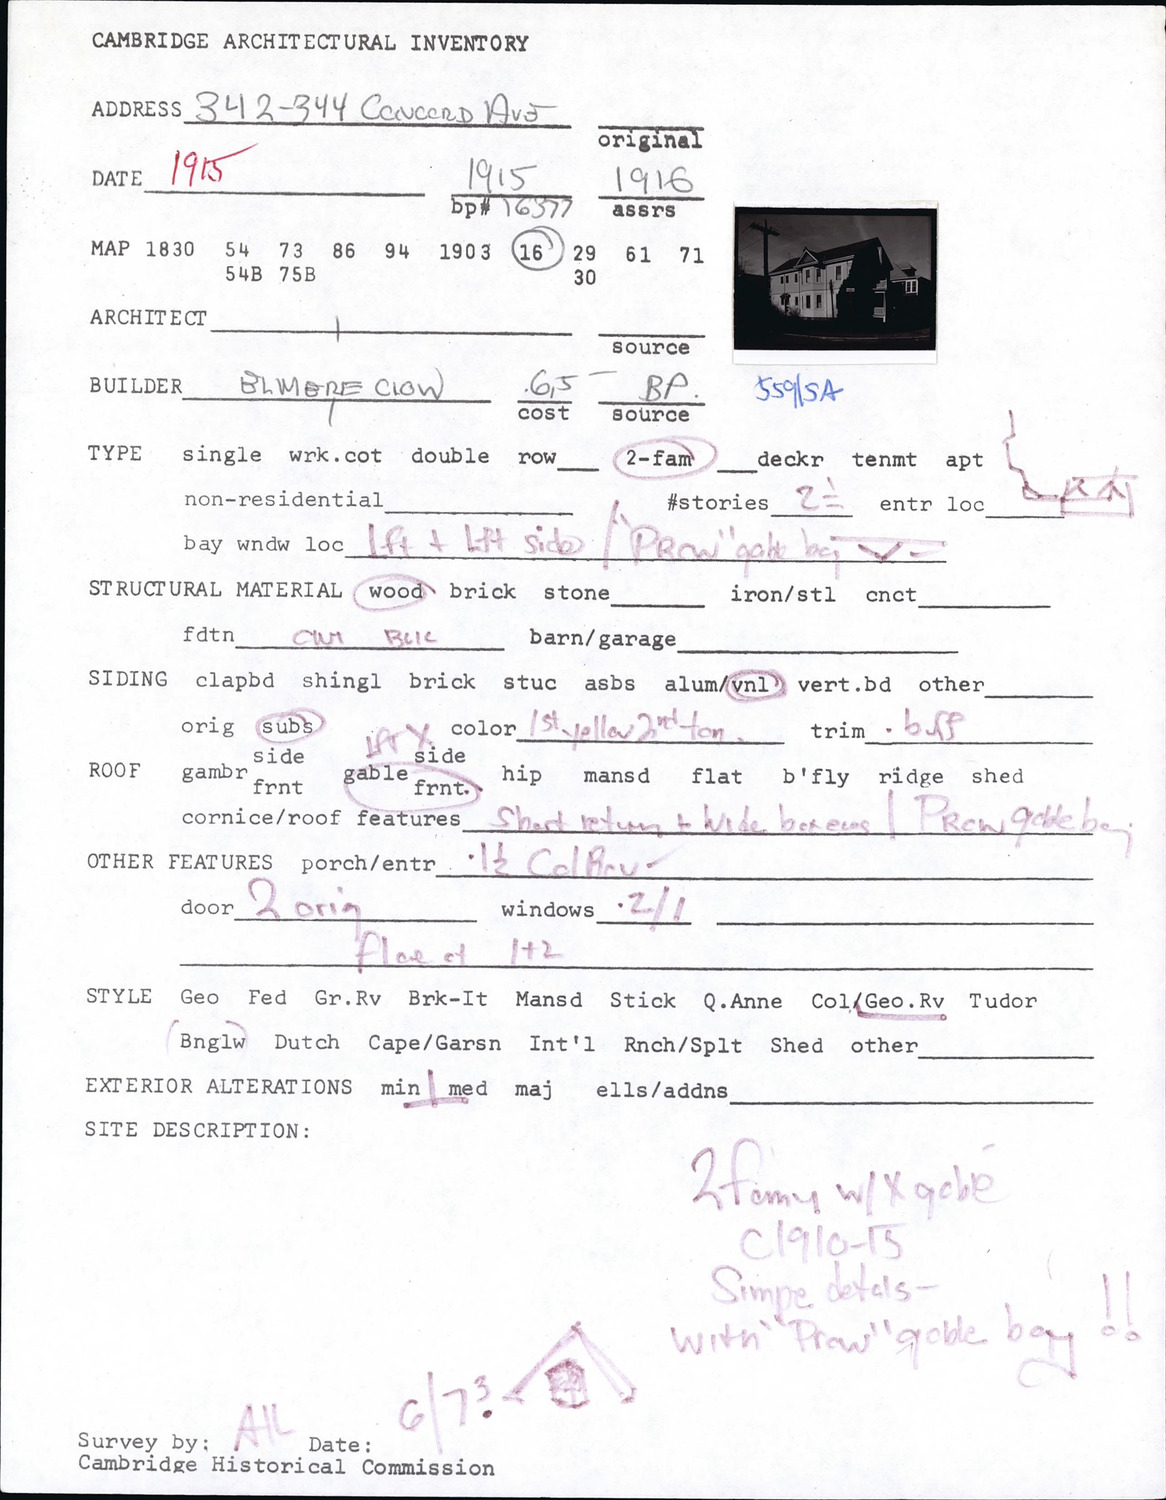 CAMBRIDGE ARCHITECTURAL INVENTORY
ADDRESS 342-344 Concord Ave
original
DATE 1915 1915 1916
bp# 16377 assrs
MAP 1830 54 73 86 94 1903 16 29 61 71
54B 75B 30
ARCHITECT
source
BUILDER ELMORE CLOW .6,5 — BP. 559/5A
cost source
TYPE single wrk.cot double row 2-fam deckr tenmt apt
non-residential #stories 2½ entr loc
bay wndw loc Lft + Lft side / "Prow" gable bay
STRUCTURAL MATERIAL wood brick stone iron/stl cnct
fdtn Blk barn/garage
SIDING clapbd shingl brick stuc asbs alum/vnl vert.bd other
orig subs color 1st yellow 2nd tan trim buff
side Lft X side
ROOF gambr gable hip mansd flat b'fly ridge shed
frnt frnt.
cornice/roof features Short returns + Wide box eaves / Prow gable bay
OTHER FEATURES porch/entr 1½ Col Rev
door 2 orig windows 2/1
Flare at 1+2
STYLE Geo Fed Gr.Rv Brk-It Mansd Stick Q.Anne Col/Geo.Rv Tudor
Bnglw Dutch Cape/Garsn Int'l Rnch/Splt Shed other
EXTERIOR ALTERATIONS min med maj ells/addns
SITE DESCRIPTION:
2 Famy w/ X gable
C1910-15
Simpe detals-
with "Prow" gable bay !!
6/73
Survey by: Date:
Cambridge Historical Commission